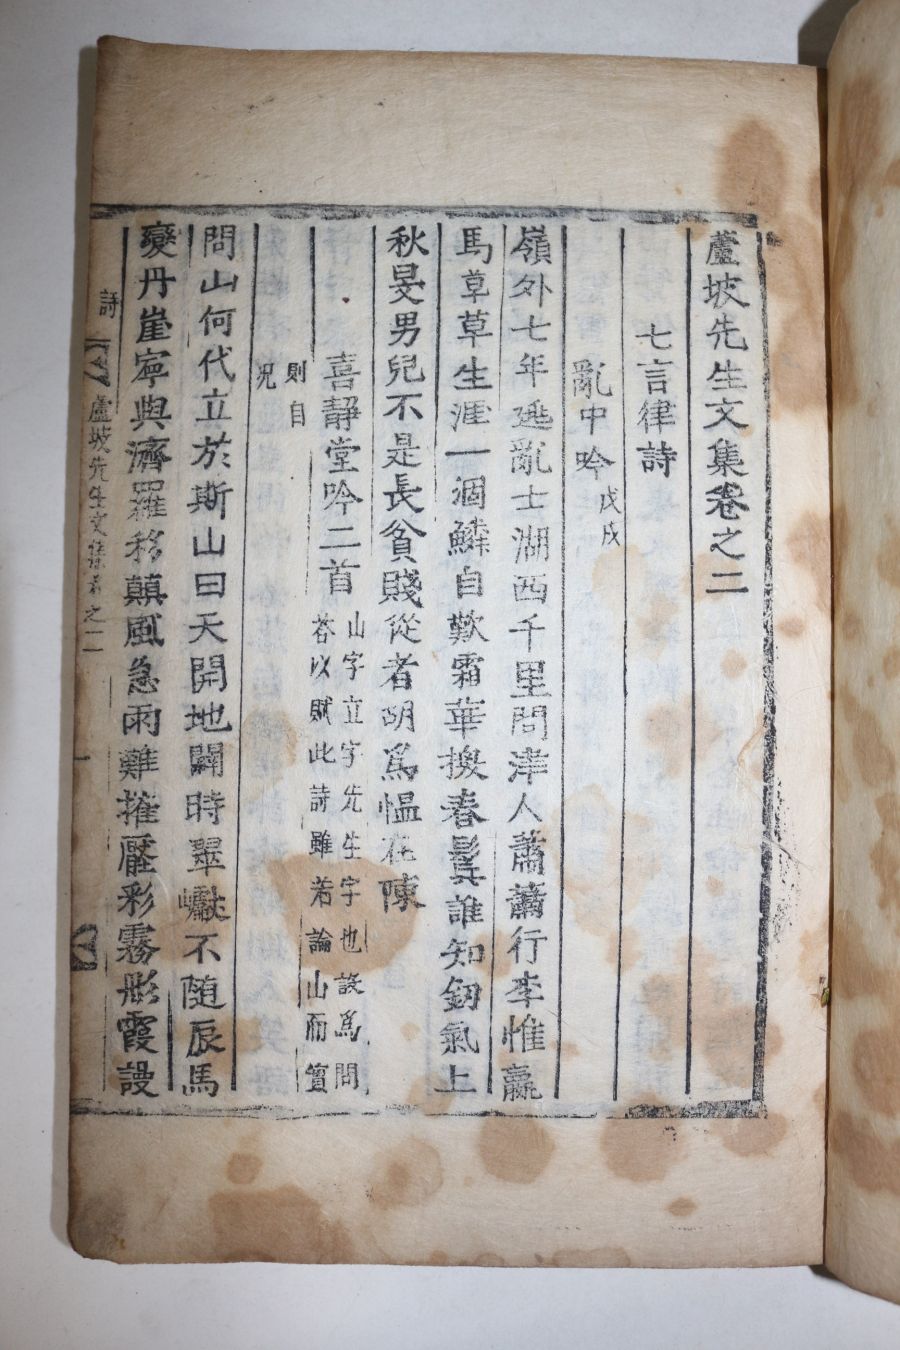 蘆坡先生文集卷之二
七言律詩
亂中吟 戊戌
嶺外七年逃亂士湖西千里問津人蕭蕭行李惟羸
馬草草生涯一涸鱗自歎霜華換春鬂誰知釰氣上
秋旻男兒不是長貧賤從者胡爲慍在陳
喜靜堂吟二首 山字立字先生字也設爲問
答以賦此詩雖若論山而實
則自
况
問山何代立於斯山曰天開地闢時翠巘不隨辰馬
變丹崖寧與濟羅移顚風急雨難摧壓彩霧彤霞謾
詩 蘆坡先生文集卷之二 一